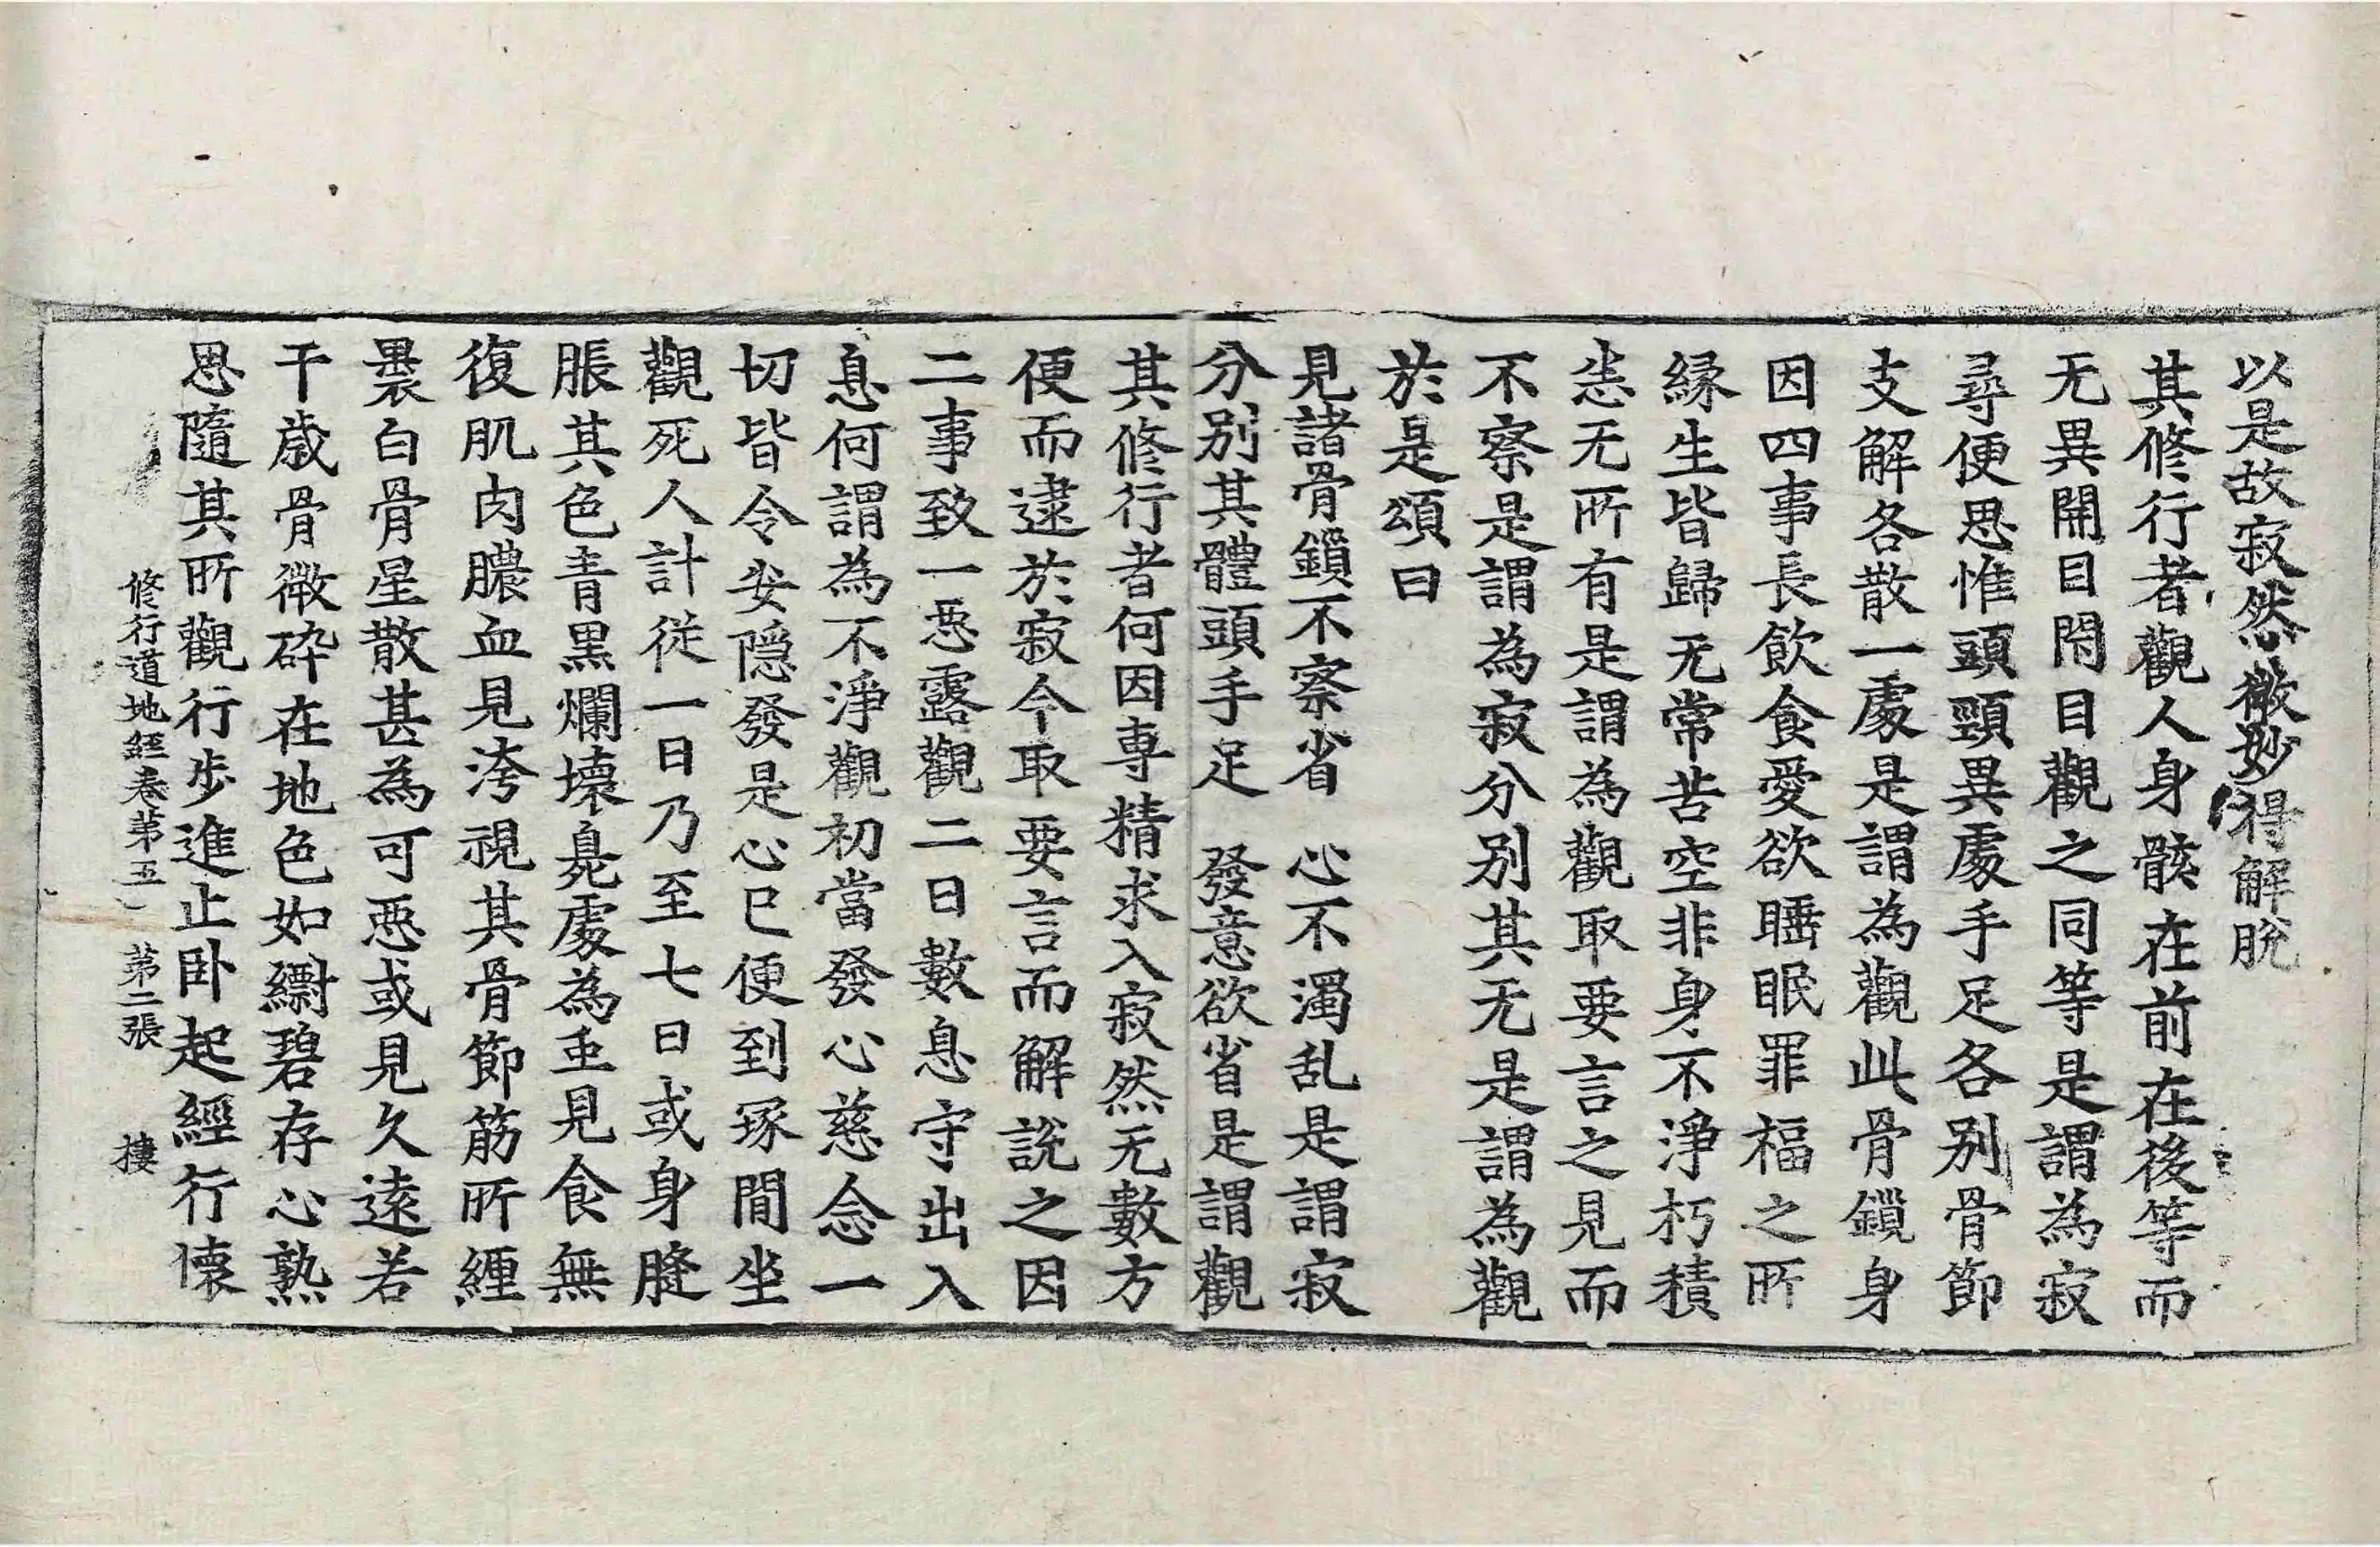 以是故寂然微妙得解脫
其修行者觀人身骸在前在後等而
无異開目閇目觀之同等是謂為寂
尋便思惟頭頸異處手足各別骨節
支解各散一處是謂為觀此骨鎖身
因四事長飲食愛欲睡眠罪福之所
緣生皆歸无常苦空非身不淨朽積
恙无所有是謂為觀取要言之見而
不察是謂為寂分別其无是謂為觀
於是頌曰
見諸骨鎖不察省 心不濁乱是謂寂
分別其體頭手足 發意欲省是謂觀
其修行者何因專精求入寂然无數方
便而逮於寂今取要言而解說之因
二事致一惡露觀二曰數息守出入
息何謂為不淨觀初當發心慈念一
切皆令安隱發是心已便到塚間坐
觀死人計從一日乃至七日或身膖
脹其色青黑爛壞臭處為虫見食無
復肌肉膿血見洿視其骨節筋所纏
裹白骨星散甚為可惡或見久遠若
干歲骨微碎在地色如縹碧存心熟
思隨其所觀行步進止臥起經行懷
修行道地經卷第五 第二張 樓